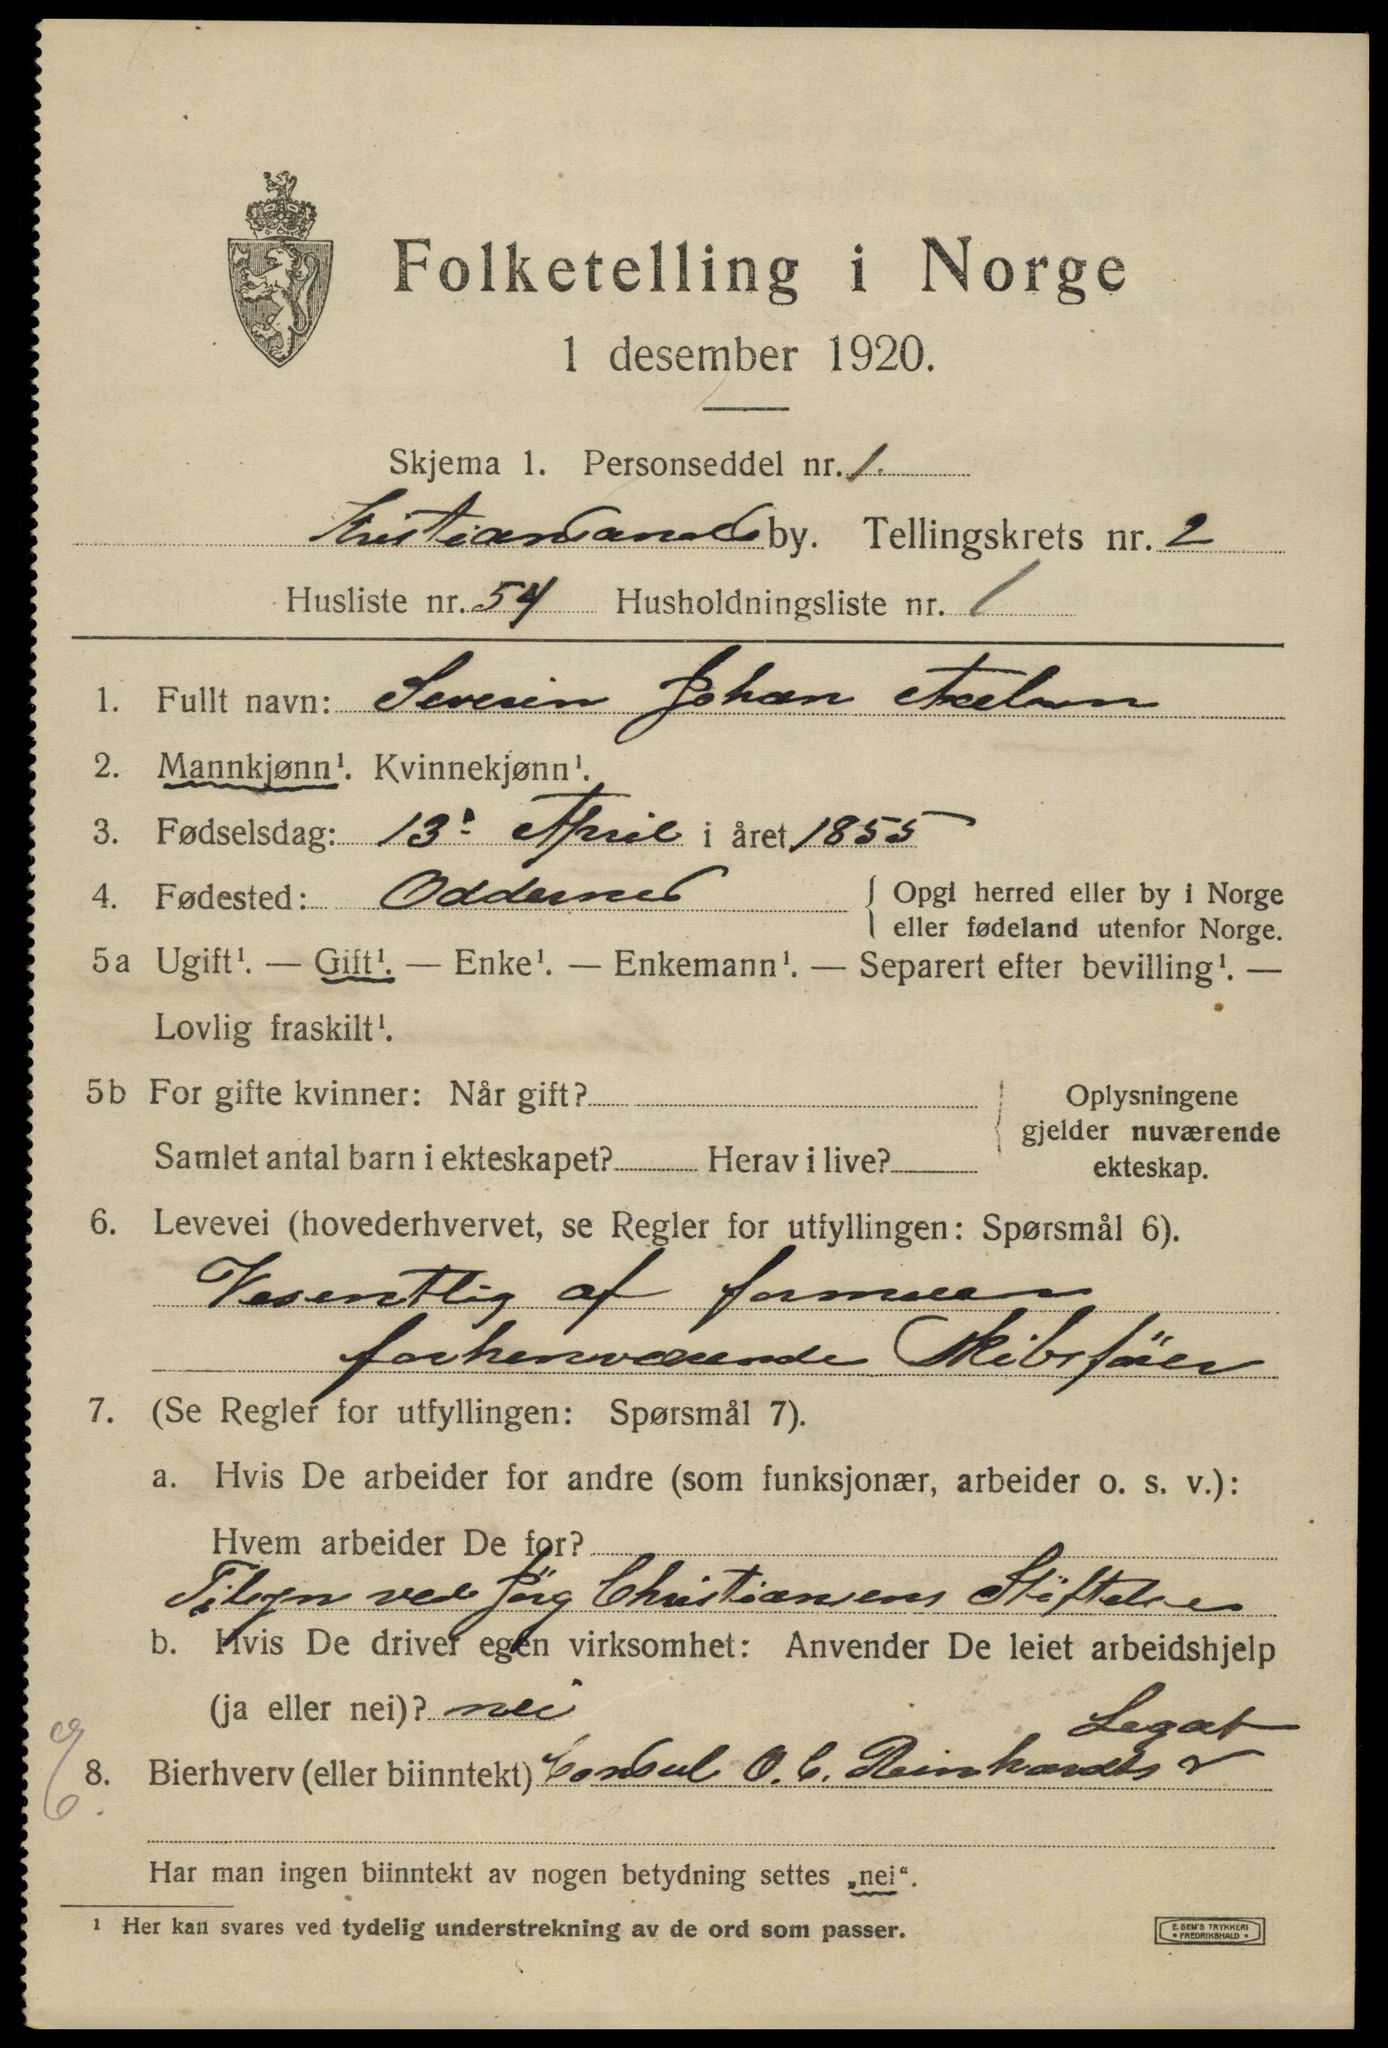 Folketelling i Norge
1 desember 1920.
Skjema 1. Personseddel nr. 1.
Kristiansands by. Tellingskrets nr. 2
Husliste nr. 54 Husholdningsliste nr. 1
1. Fullt navn: Severin Johan Axelsen
2. Mannkjønn¹. Kvinnekjønn¹.
3. Fødselsdag: 13de April i året 1855
4. Fødested: Oddernes { Opgi herred eller by i Norge
eller fødeland utenfor Norge.
5a Ugift¹. — Gift¹. — Enke¹. — Enkemann¹. — Separert efter bevilling¹. —
Lovlig fraskilt¹.
5b For gifte kvinner: Når gift? { Oplysningene
gjelder nuværende
Samlet antal barn i ekteskapet? Herav i live?
ekteskap.
6. Levevei (hovederhvervet, se Regler for utfyllingen: Spørsmål 6).
Vesentlig af formuen
forhenværende Skibsfører
7. (Se Regler for utfyllingen: Spørsmål 7).
a. Hvis De arbeider for andre (som funksjonær, arbeider o. s. v.):
Hvem arbeider De for?
Tilsyn ved Jörg Christiansens Stiftelse
b. Hvis De driver egen virksomhet: Anvender De leiet arbeidshjelp
(ja eller nei)? nei
Legat
8. Bierhverv (eller biinntekt) Consul O. C. Reinhardts
Har man ingen biinntekt av nogen betydning settes „nei“.
¹ Her kan svares ved tydelig understrekning av de ord som passer.
E. SEM'S TRYKKERI
• FREDRIKSHALD •